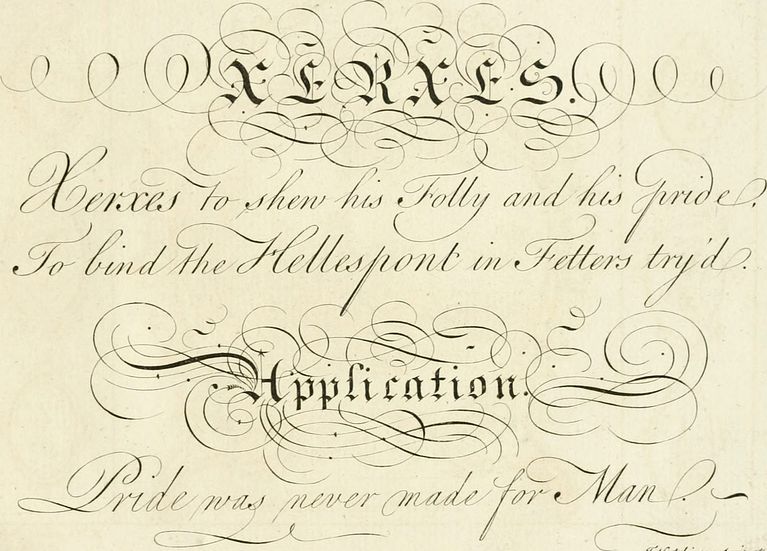 XERXES.
Xerxes to shew his Folly and his pride,
To bind the Hellespont in Fetters try'd.
Application.
Pride was never made for Man.